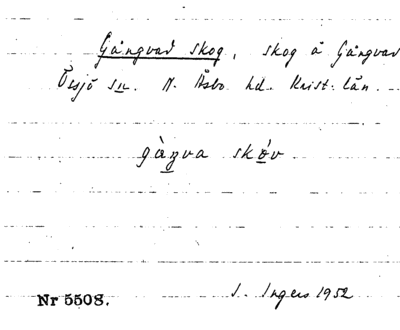 Gångvad skog, skog å Gångvad
Örsjö sn. N. Åsbo hd. Krist. län.
gàŋva skóv
Nr 5508. I. Ingers 1952